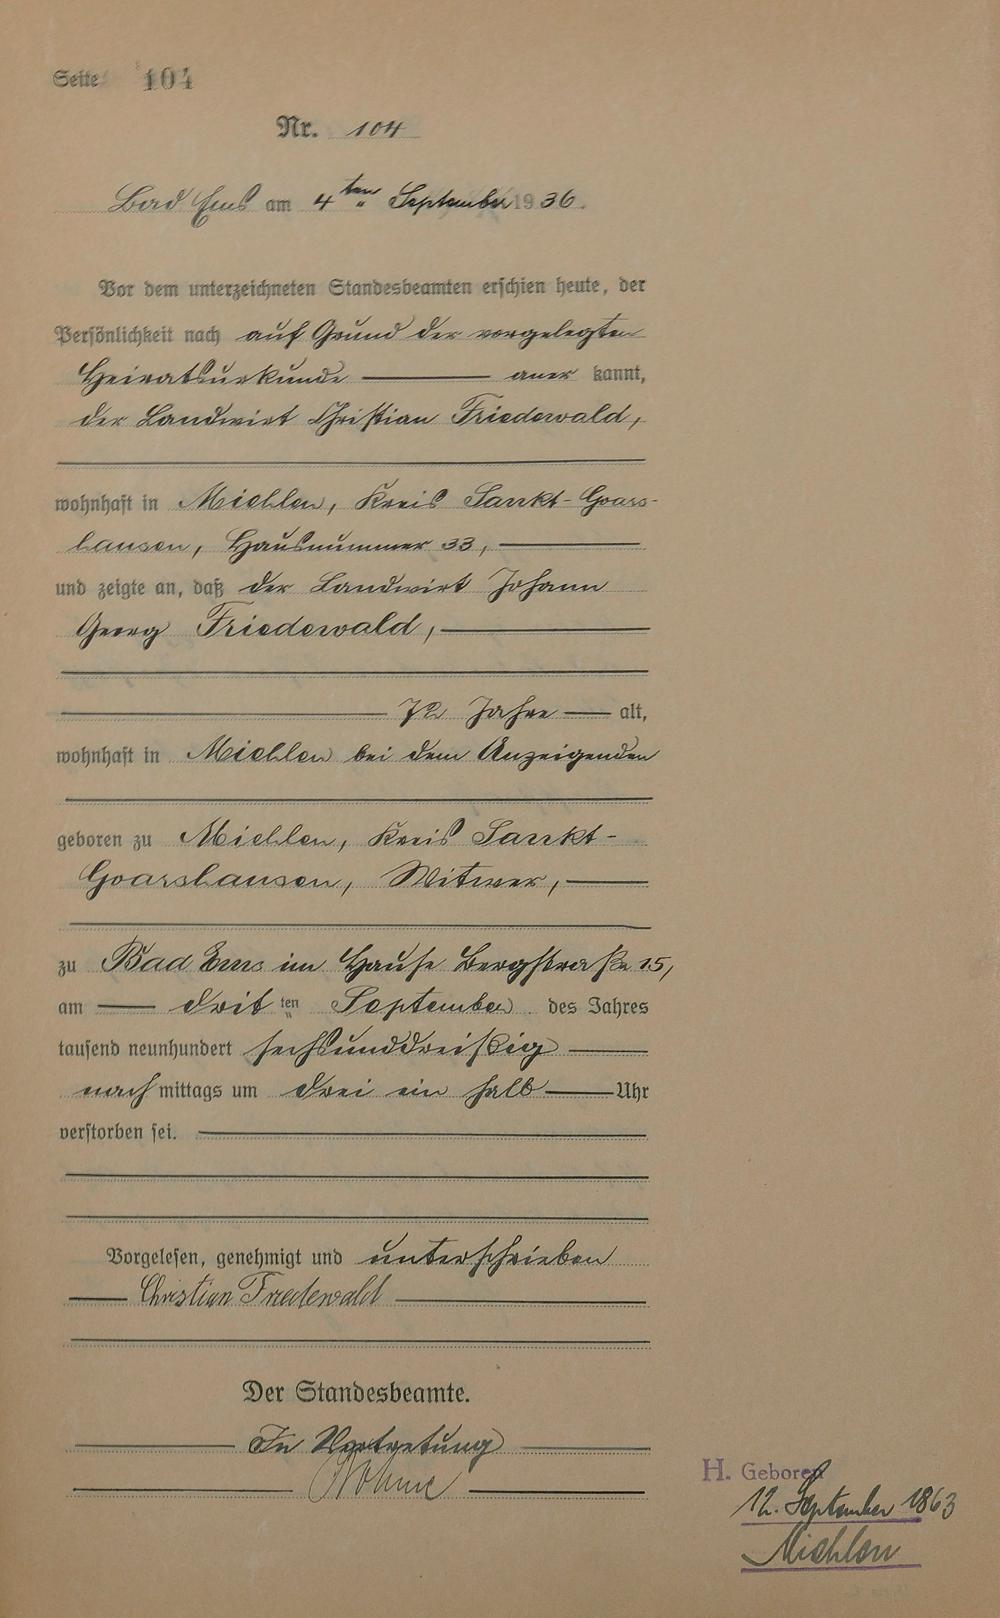 Seite 104
Nr. 104
Bad Ems am 4ten September 1936.
Vor dem unterzeichneten Standesbeamten erschien heute, der
Persönlichkeit nach auf Grund der vorgelegten
Heiratsurkunde — aner kannt,
der Landwirt Christian Friedewald,
wohnhaft in Miehlen, Kreis Sankt-Goars-
hausen, Hausnummer 33, —
und zeigte an, daß der Landwirt Johann
Georg Friedewald, —
— 72 Jahre — alt,
wohnhaft in Miehlen bei dem Anzeigenden
geboren zu Miehlen, Kreis Sankt-
Goarshausen, Witwer, —
zu Bad Ems im Hause Bergstraße 15,
am — dritten September des Jahres
tausend neunhundert sechsunddreißig —
nachmittags um drei ein halb — Uhr
verstorben sei. —
Vorgelesen, genehmigt und unterschrieben
— Christian Friedewald —
Der Standesbeamte.
— In Vertretung —
H. Geboren
12. September 1863
Miehlen